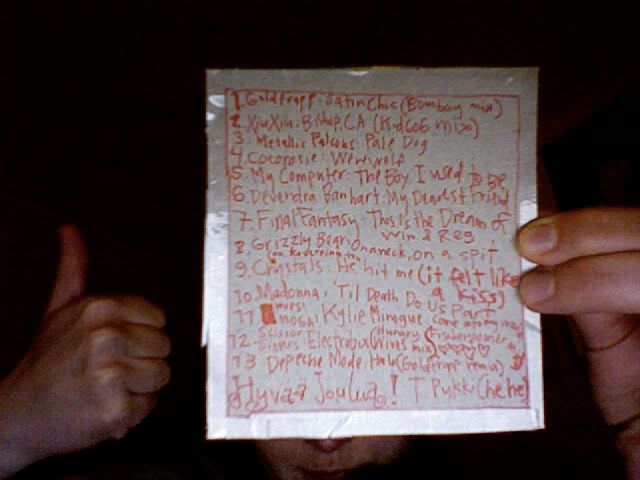 1. Goldfrapp: Satin Chic (Bombay mix)
2. Xiu Xiu: Bishop, CA (Kid606 mix)
3. Metallic Falcons: Pale Dog
4. Cocorosie: Werwolf
5. My Computer: The Boy I used to be
6. Devendra Banhart: My Dearest Friend
7. Final Fantasy: This Is the Dream of
Win & Reg
8. Grizzly Bear: On a neck, on a spit
9. Crystals: He hit me (it felt like
a kiss)
10. Madonna: 'Til Death Do Us Part
11. Kylie Minogue
12. Scissor Electrobix
13 Depeche Mode: Halo (Goldfrapp remix)
Hyvää Joulua! T Pukki (hehe)